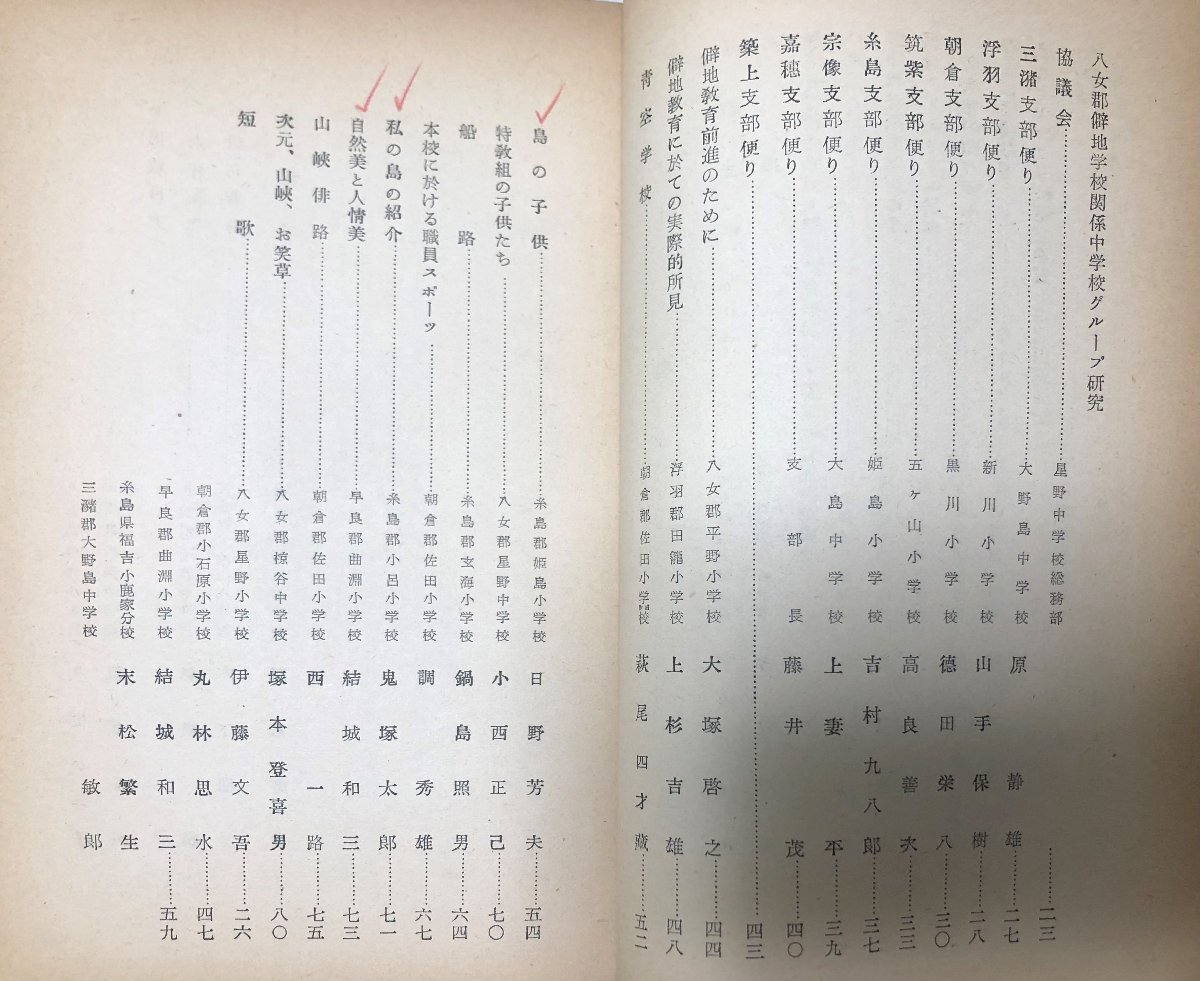 八女郡僻地学校関係中学校グループ研究
協議会……星野中学校総務部……二三
三潴支部便り……大野島中学校 原静雄……二七
浮羽支部便り……新川小学校 山手保樹……二八
朝倉支部便り……黒川小学校 徳田栄八……三〇
筑紫支部便り……五ヶ山小学校 高良善次……三三
糸島支部便り……姫島小学校 吉村九八郎……三七
宗像支部便り……大島中学校 上妻平……三九
嘉穂支部便り……支部長 藤井茂……四〇
築上支部便り……四三
僻地教育前進のために……八女郡平野小学校 大塚啓之……四四
僻地教育に於ての実際的所見……浮羽郡田籠小学校 上杉吉雄……四八
青空学校……朝倉郡佐田小学校 萩尾四才藏……五二
島の子供……糸島郡姫島小学校 日野芳夫……五四
特教組の子供たち……八女郡星野中学校 小西正己……七〇
船路……糸島郡玄海小学校 鍋島照男……六四
本校に於ける職員スポーツ……朝倉郡佐田小学校 調秀雄……六七
私の島の紹介……糸島郡小呂小学校 鬼塚太郎……七一
自然美と人情美……早良郡曲淵小学校 結城和三……七三
山峡俳路……朝倉郡佐田小学校 西一路……七五
次元、山峡、お笑草……八女郡椋谷中学校 塚本登喜男……八〇
短歌……八女郡星野小学校 伊藤文吾……二六
朝倉郡小石原小学校 丸林思水……四七
早良郡曲淵小学校 結城和三……五九
糸島県福吉小鹿家分校 末松繁生
三潴郡大野島中学校 敏郎